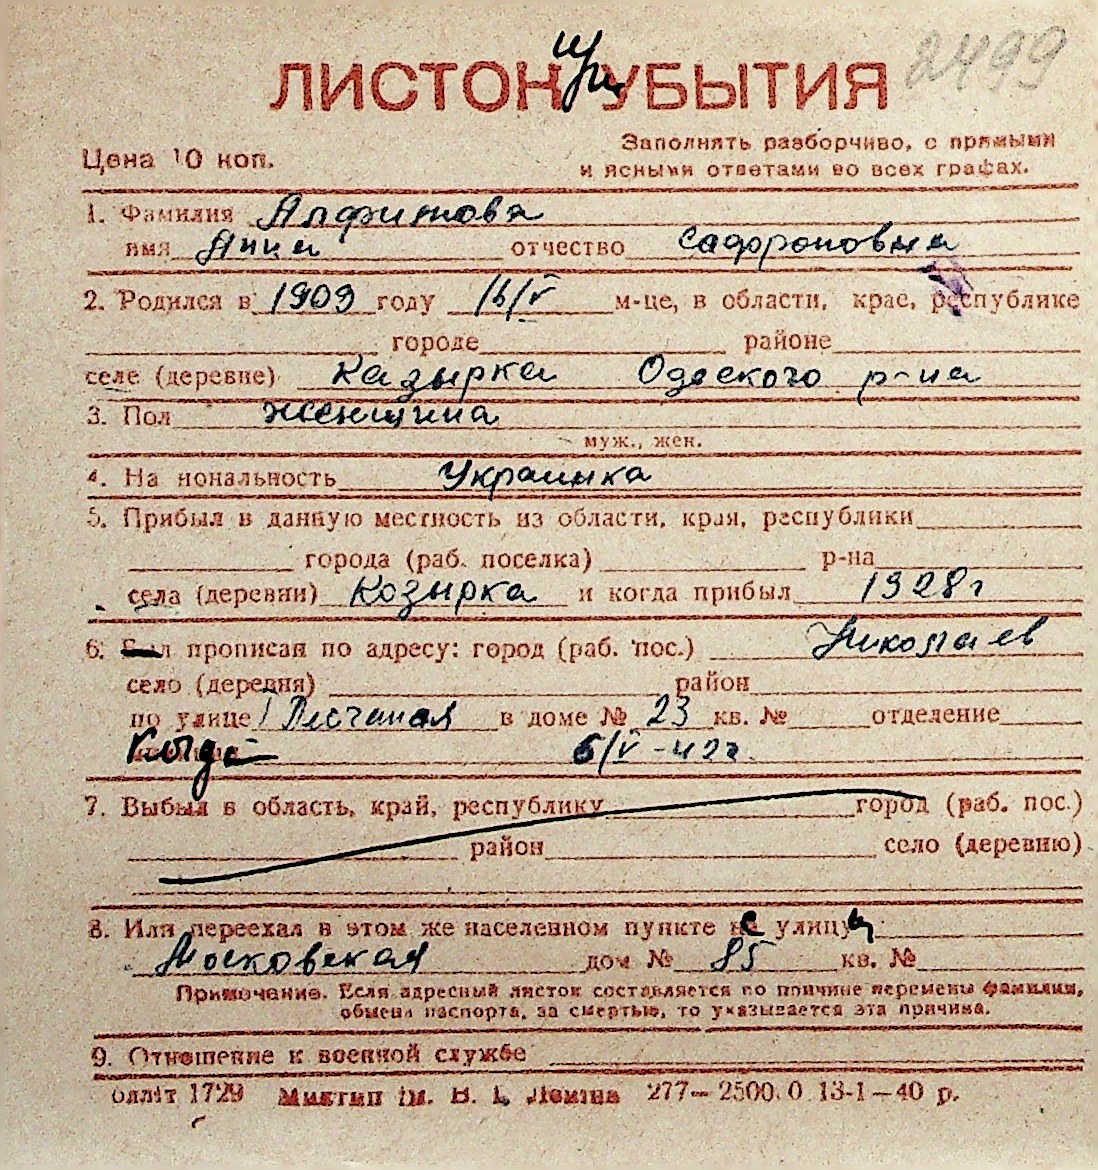 2499
ЛИСТОК ПРИБЫТИЯ
Цена 10 коп.
Заполнять разборчиво, с прямыми
и ясными ответами во всех графах.
1. Фамилия Алфимова
имя Анна отчество Сафроновна
2. Родился в 1909 году 16/V м-це, в области, крае, республике
городе районе
селе (деревне) Казырка Одеского р-на
3. Пол женщина
муж., жен.
4. Национальность Украинка
5. Прибыл в данную местность из области, края, республики
города (раб. поселка) р-на
села (деревни) Козырка и когда прибыл 1928г
6. прописан по адресу: город (раб. пос.) Николаев
село (деревня) район
по улице I Песчаная в доме № 23 кв. № отделение
Когда 5/V-42г.
7. Выбыл в область, край, республику город (раб. пос.)
район село (деревню)
8. Или переехал в этом же населенном пункте с улицы
Московская дом № 85 кв. №
Примечание. Если адресный листок составляется по причине перемены фамилии,
обмена паспорта, за смертью, то указывается эта причина.
9. Отношение к военной службе
Оолліт 1729 Миктип ім. В. І. Леніна 277—2500.0 13-1—40 р.